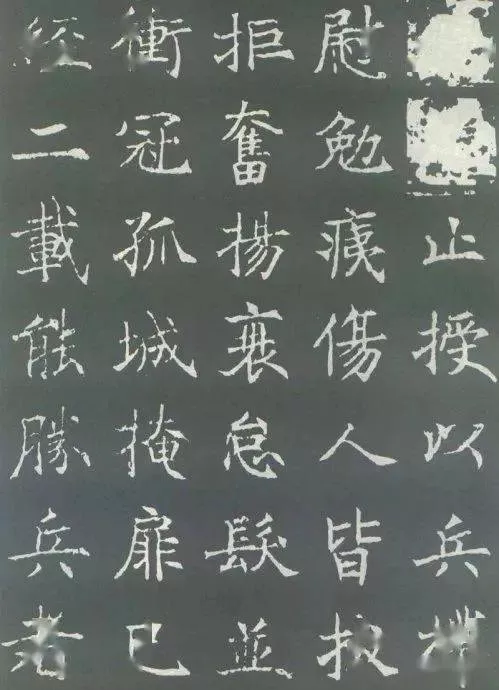 止授以兵
尉勉痍傷人皆
拒奮揚衰怠髮並
衝冠孤城掩扉已
經二載能勝兵者